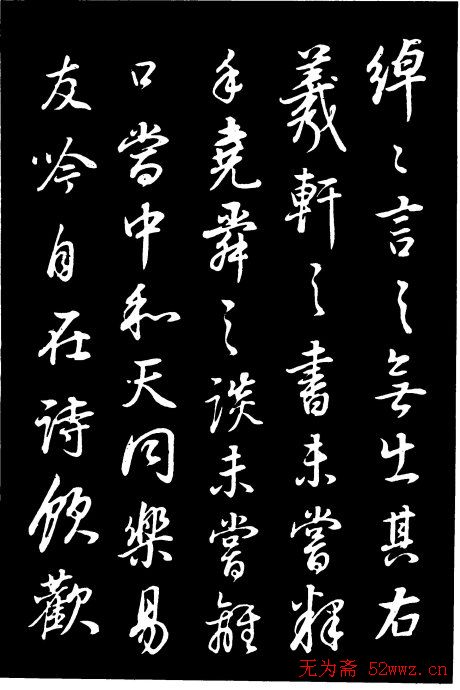 綽〻言之無出其右
羲軒之書未嘗釋
手堯舜之談未嘗離
口當中和天同樂易
友吟自在詩飲歡
无为斋 52wwz.cn